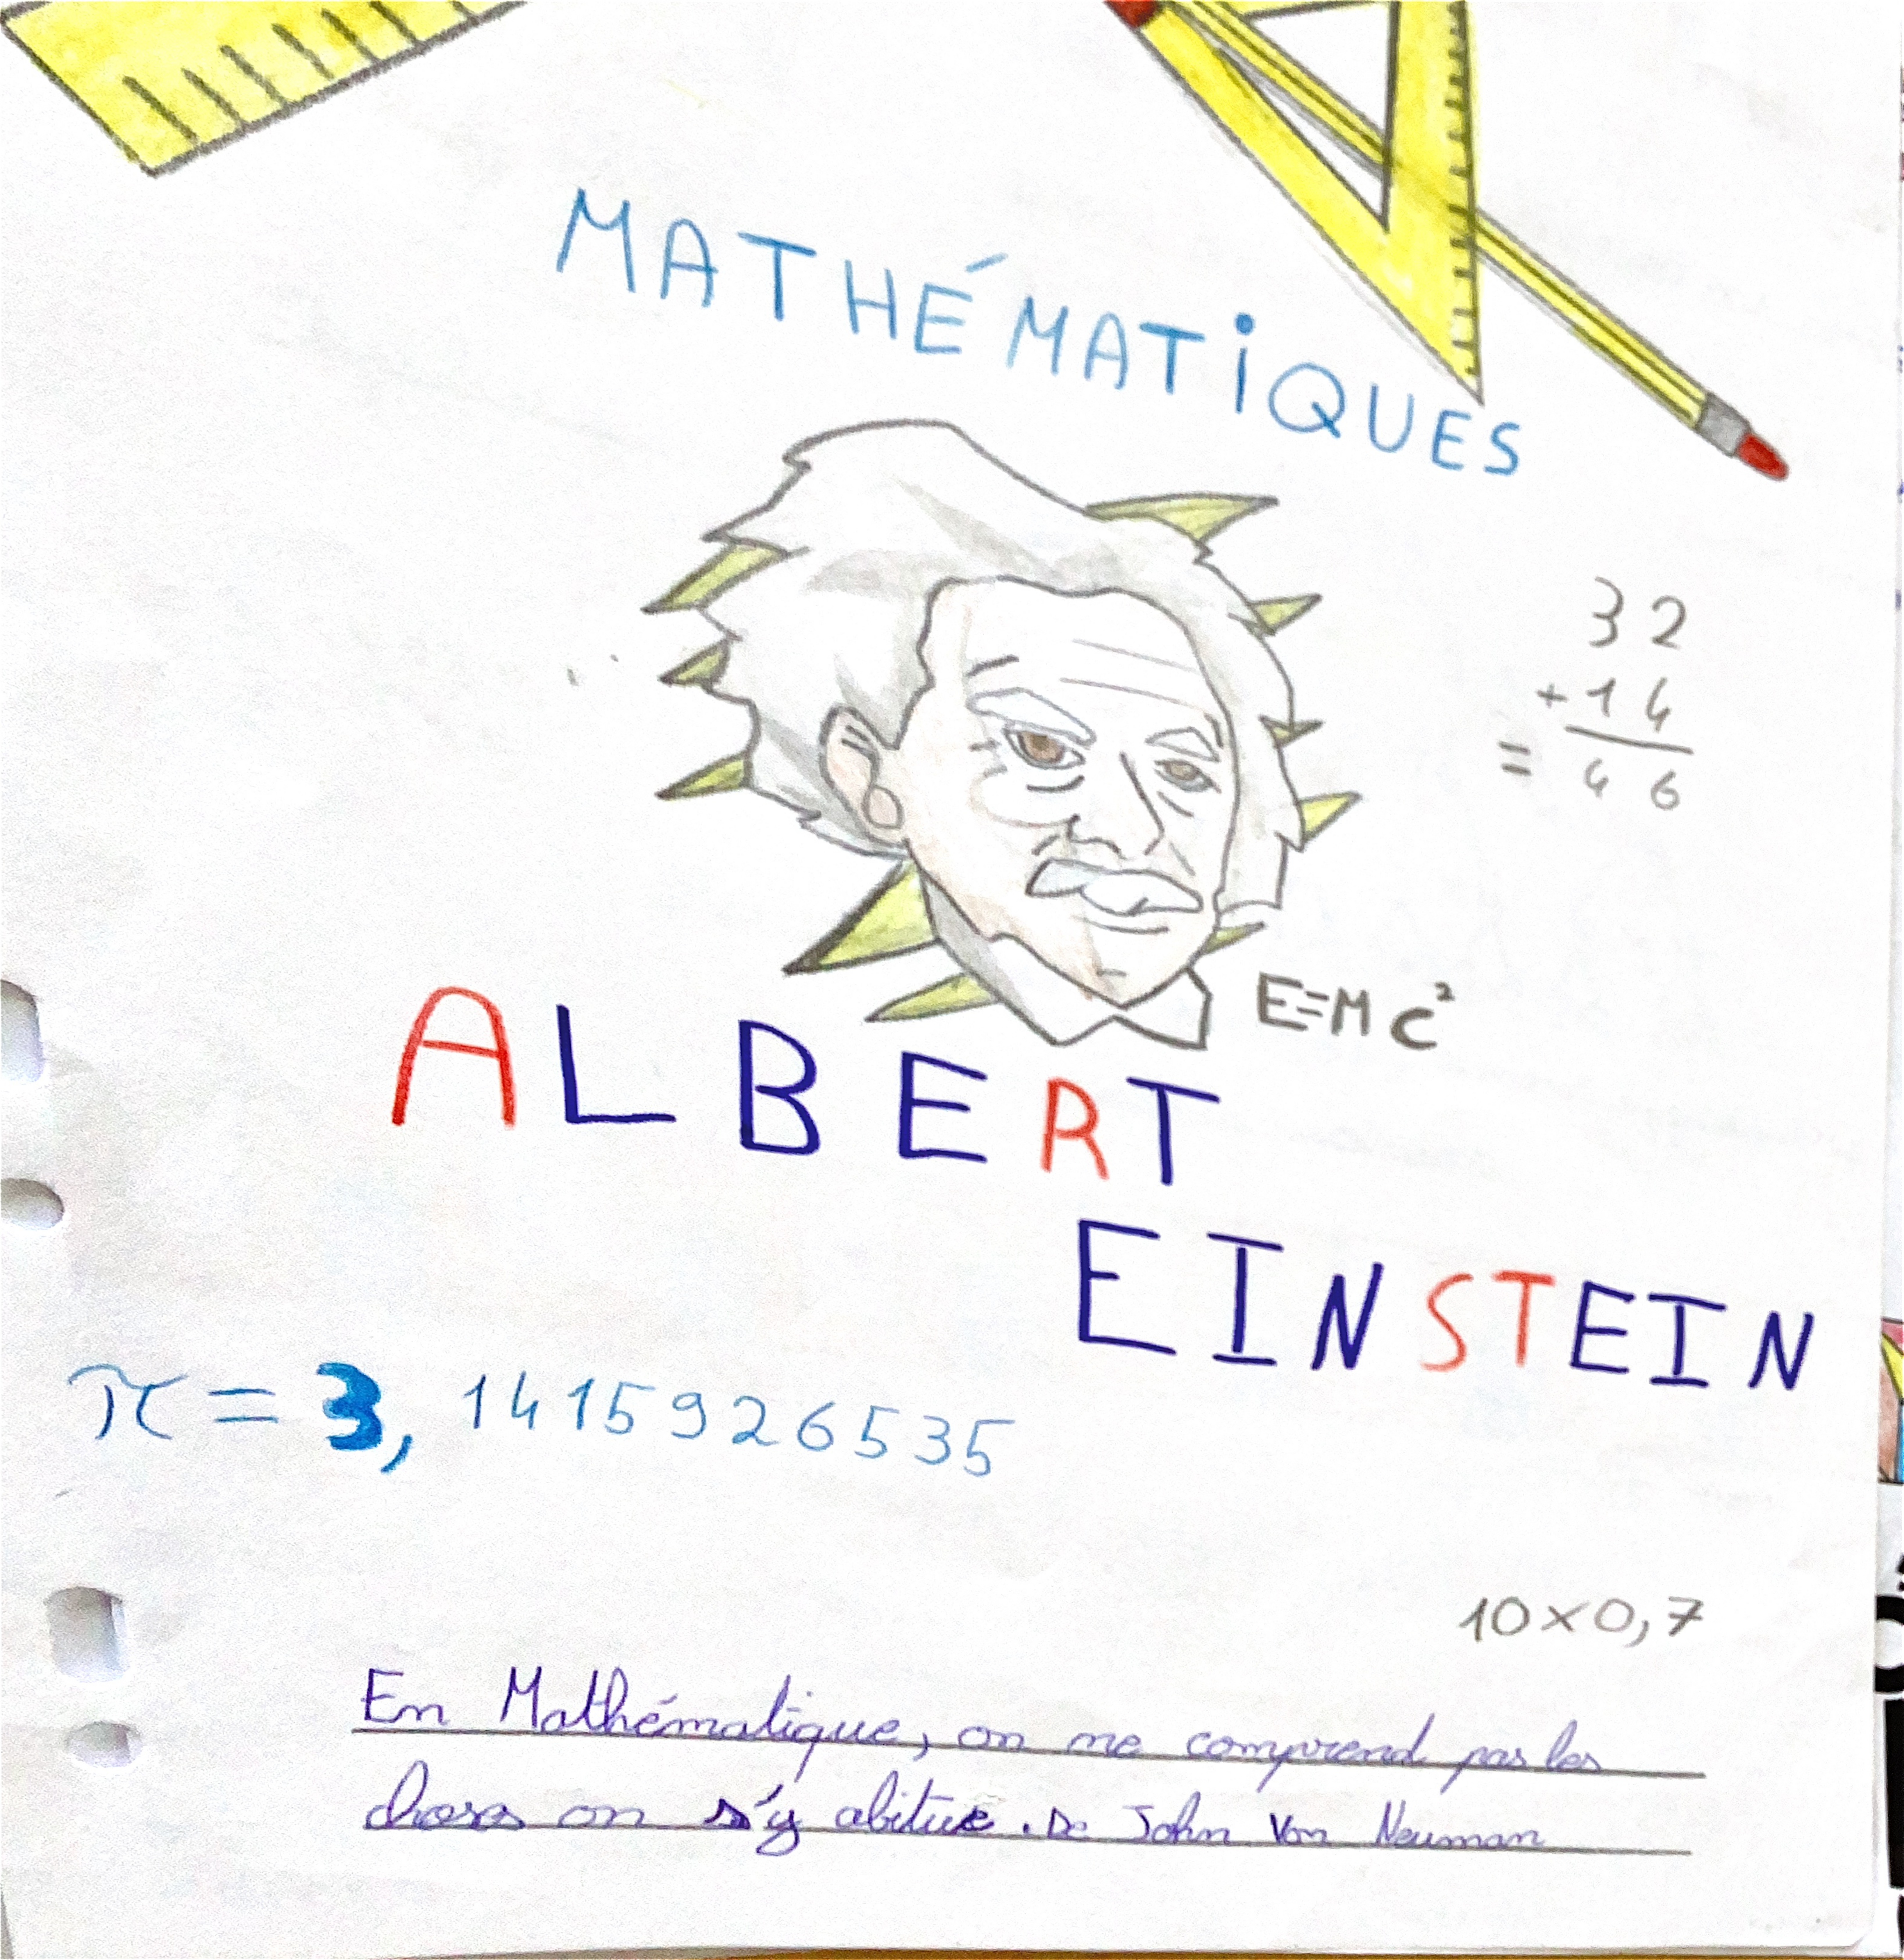 MATHÉMATiQUES
32
+14
= 46
E=MC²
ALBERT
EINSTEIN
π = 3,1415926535
10×0,7
En Mathématique, on ne comprend pas les
choses on s'y abitue. De John Von Neuman